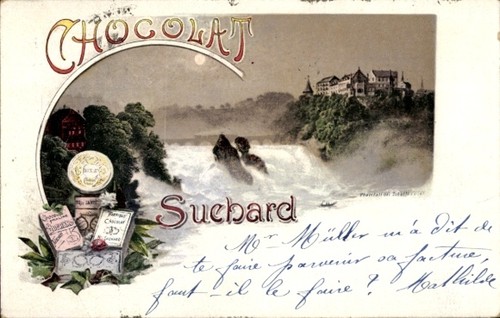 CHOCOLAT
Suchard
Rheinfall bei Schaffhausen
Mr Müller m'a dit de
te faire parvenir sa facture,
faut-il le faire? Mathilde